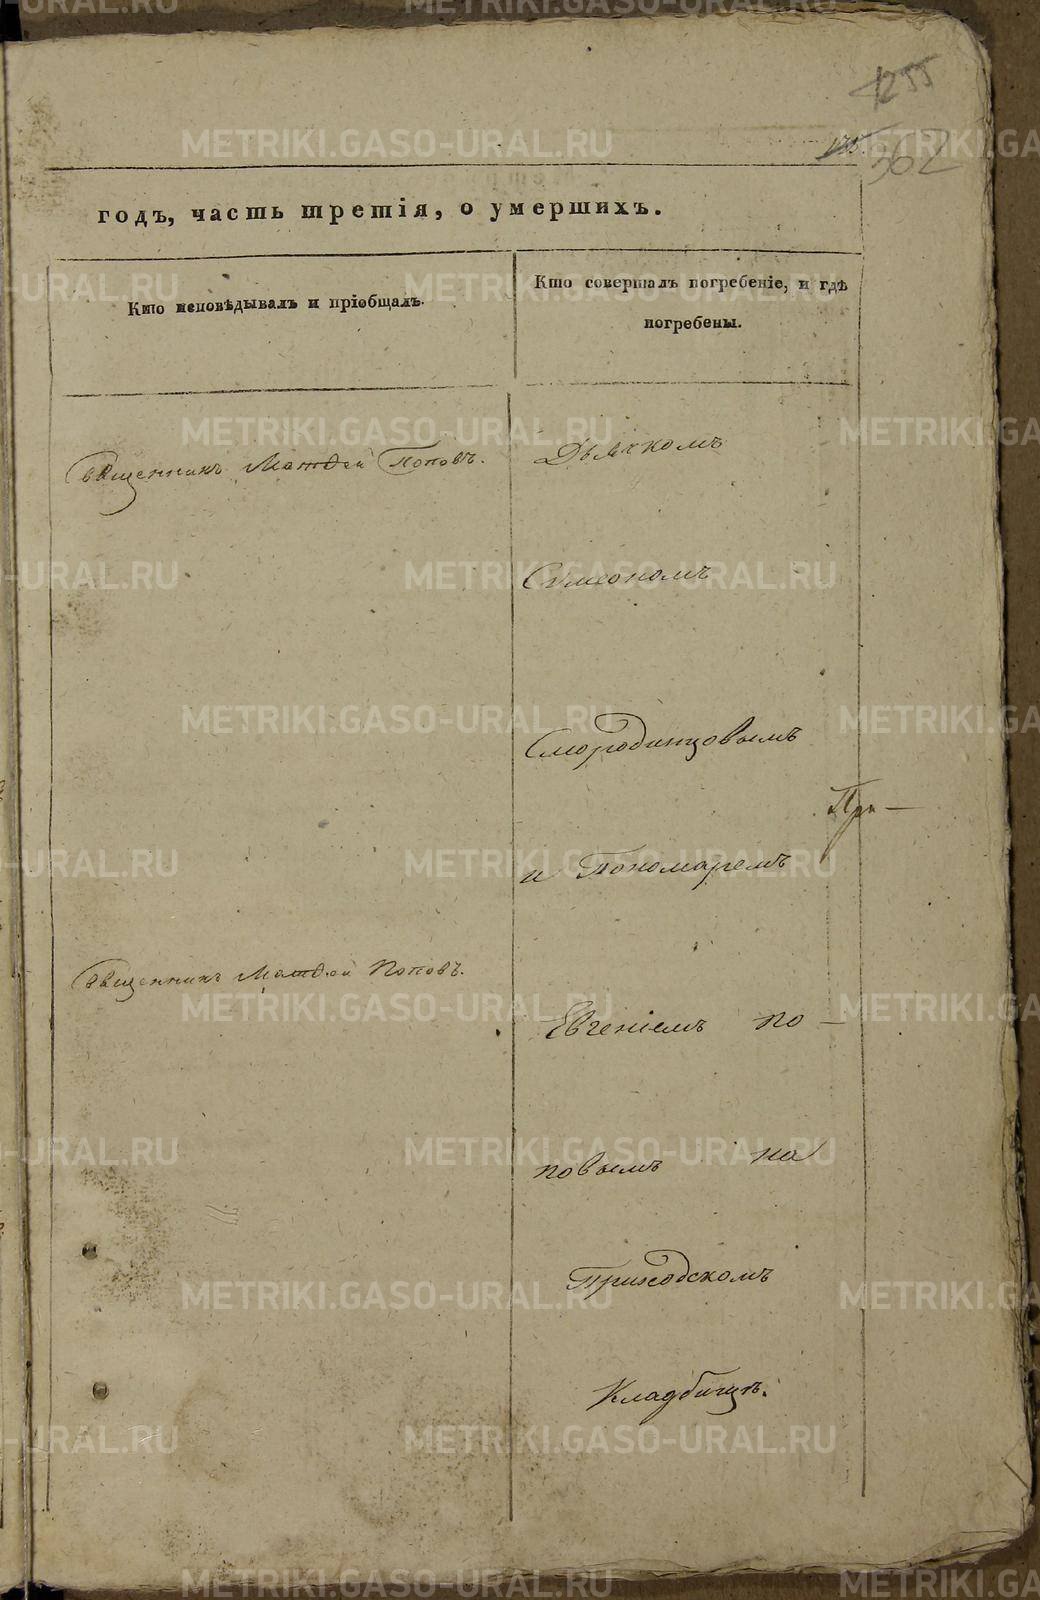 1255
302
годъ, часть третія, о умершихъ.
Кто исповѣдывалъ и пріобщалъ.
Кто совершалъ погребеніе, и гдѣ
погребены.
Священникъ Матѳей Поповъ.
Дьячкомъ
Сѵмеономъ
Смородинцовымъ
При—
и Пономаремъ
Священникъ Матѳей Поповъ.
Евгеніемъ По—
повымъ на
Приходскомъ
Кладбищѣ.
METRIKI.GASO-URAL.RU